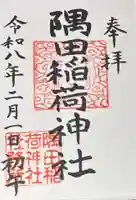 奉拝
隅田稲荷神社
令和八年二月一日初午
隅田稲荷神社